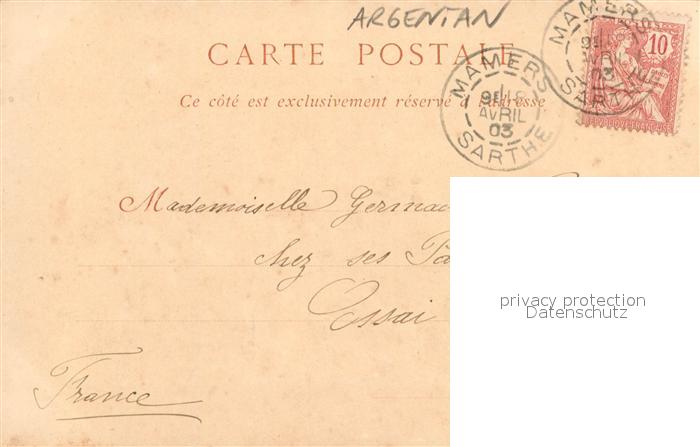 ARGENTAN
CARTE POSTALE
Ce côté est exclusivement réservé à l'adresse
MAMERS
AVRIL
03
SARTHE
MAMERS
AVRIL
03
10
Mademoiselle Germa
chez ses Pa
Essai
France
privacy protection
Datenschutz